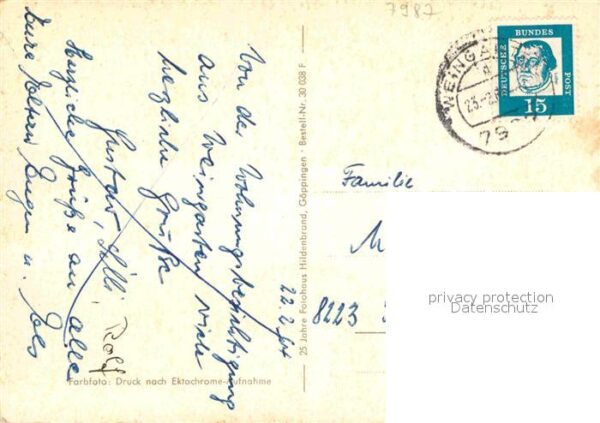 7987
Von der Wohnungsbesichtigung
aus Weingarten viele
herzliche Grüße
Gustav, Lilli Rolf
Herzliche Grüße an alle
Eure Eltern Eugen u.
22.2.64
25 Jahre Fotohaus Hildenbrand, Göppingen · Bestell-Nr. 30 038 F
Farbfoto: Druck nach Ektachrome-Aufnahme
DEUTSCHE BUNDES POST
15
WEING
23.-2.
79
Familie
M
8223
privacy protection
Datenschutz